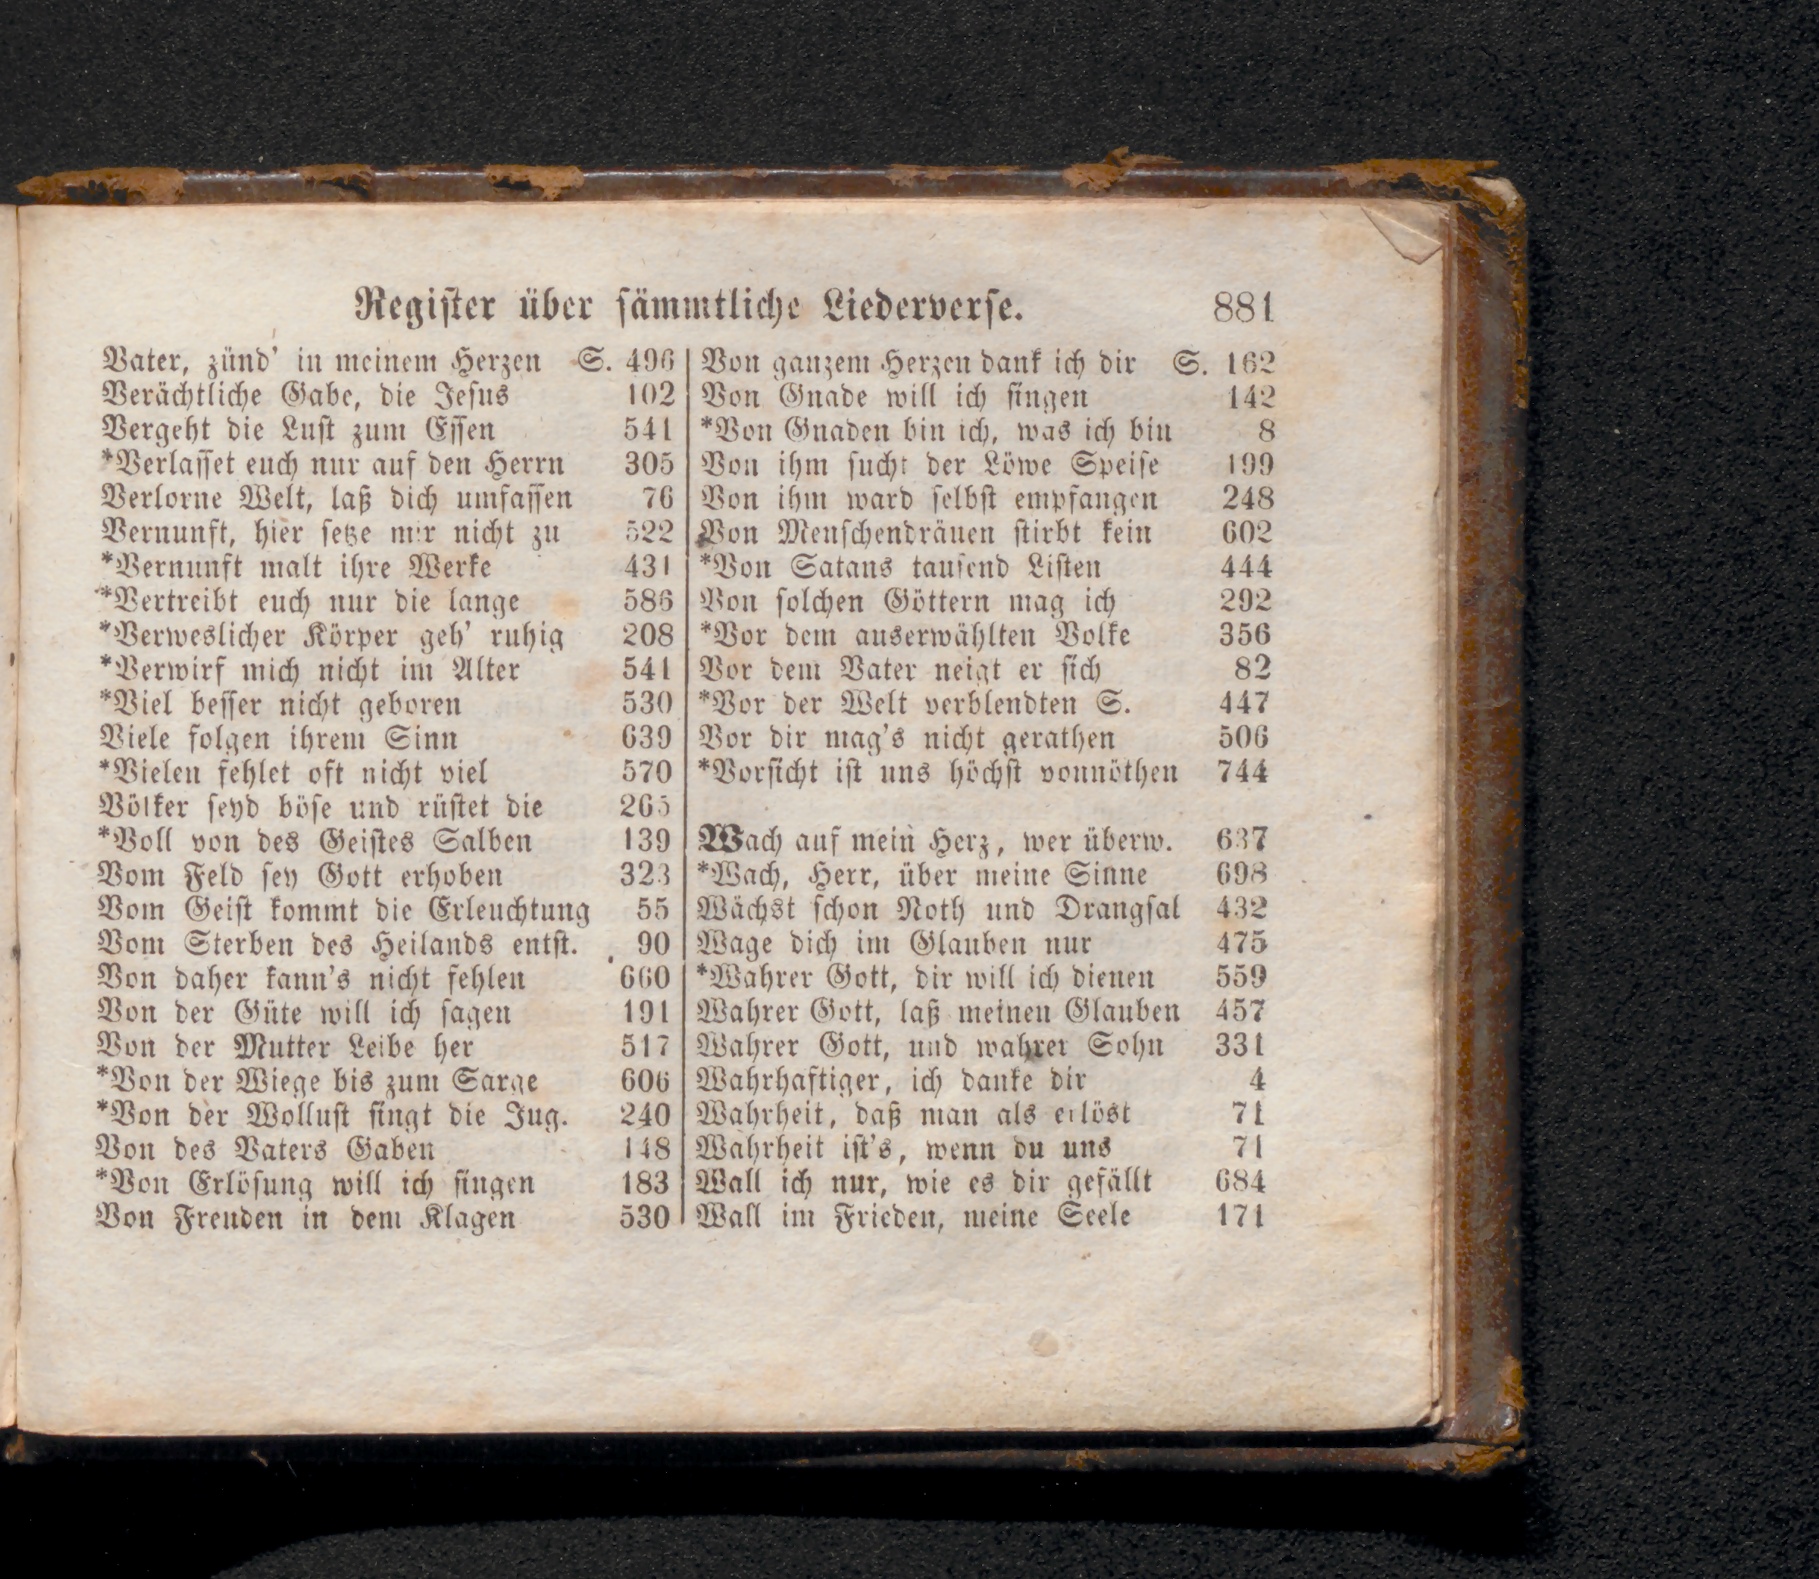 Register über sämmtliche Liederverse. 881
Vater, zünd' in meinem Herzen S. 496
Verächtliche Gabe, die Jesus 102
Vergeht die Lust zum Essen 541
*Verlasset euch nur auf den Herrn 305
Verlorne Welt, laß dich umfassen 76
Vernunft, hier setze mir nicht zu 522
*Vernunft malt ihre Werke 431
*Vertreibt euch nur die lange 586
*Verweslicher Körper geh' ruhig 208
*Verwirf mich nicht im Alter 541
*Viel besser nicht geboren 530
Viele folgen ihrem Sinn 639
*Vielen fehlet oft nicht viel 570
Völker seyd böse und rüstet die 265
*Voll von des Geistes Salben 139
Vom Feld sey Gott erhoben 323
Vom Geist kommt die Erleuchtung 55
Vom Sterben des Heilands entst. 90
Von daher kann's nicht fehlen 660
Von der Güte will ich sagen 191
Von der Mutter Leibe her 517
*Von der Wiege bis zum Sarge 606
*Von der Wollust singt die Jug. 240
Von des Vaters Gaben 148
*Von Erlösung will ich singen 183
Von Freuden in dem Klagen 530
Von ganzem Herzen dank ich dir S. 162
Von Gnade will ich singen 142
*Von Gnaden bin ich, was ich bin 8
Von ihm sucht der Löwe Speise 199
Von ihm ward selbst empfangen 248
Von Menschendräuen stirbt kein 602
*Von Satans tausend Listen 444
Von solchen Göttern mag ich 292
*Vor dem auserwählten Volke 356
Vor dem Vater neigt er sich 82
*Vor der Welt verblendten S. 447
Vor dir mag's nicht gerathen 506
*Vorsicht ist uns höchst vonnöthen 744
Wach auf mein Herz, wer überw. 637
*Wach, Herr, über meine Sinne 698
Wächst schon Noth und Drangsal 432
Wage dich im Glauben nur 475
*Wahrer Gott, dir will ich dienen 559
Wahrer Gott, laß meinen Glauben 457
Wahrer Gott, und wahrer Sohn 331
Wahrhaftiger, ich danke dir 4
Wahrheit, daß man als erlöst 71
Wahrheit ist's, wenn du uns 71
Wall ich nur, wie es dir gefällt 684
Wall im Frieden, meine Seele 171